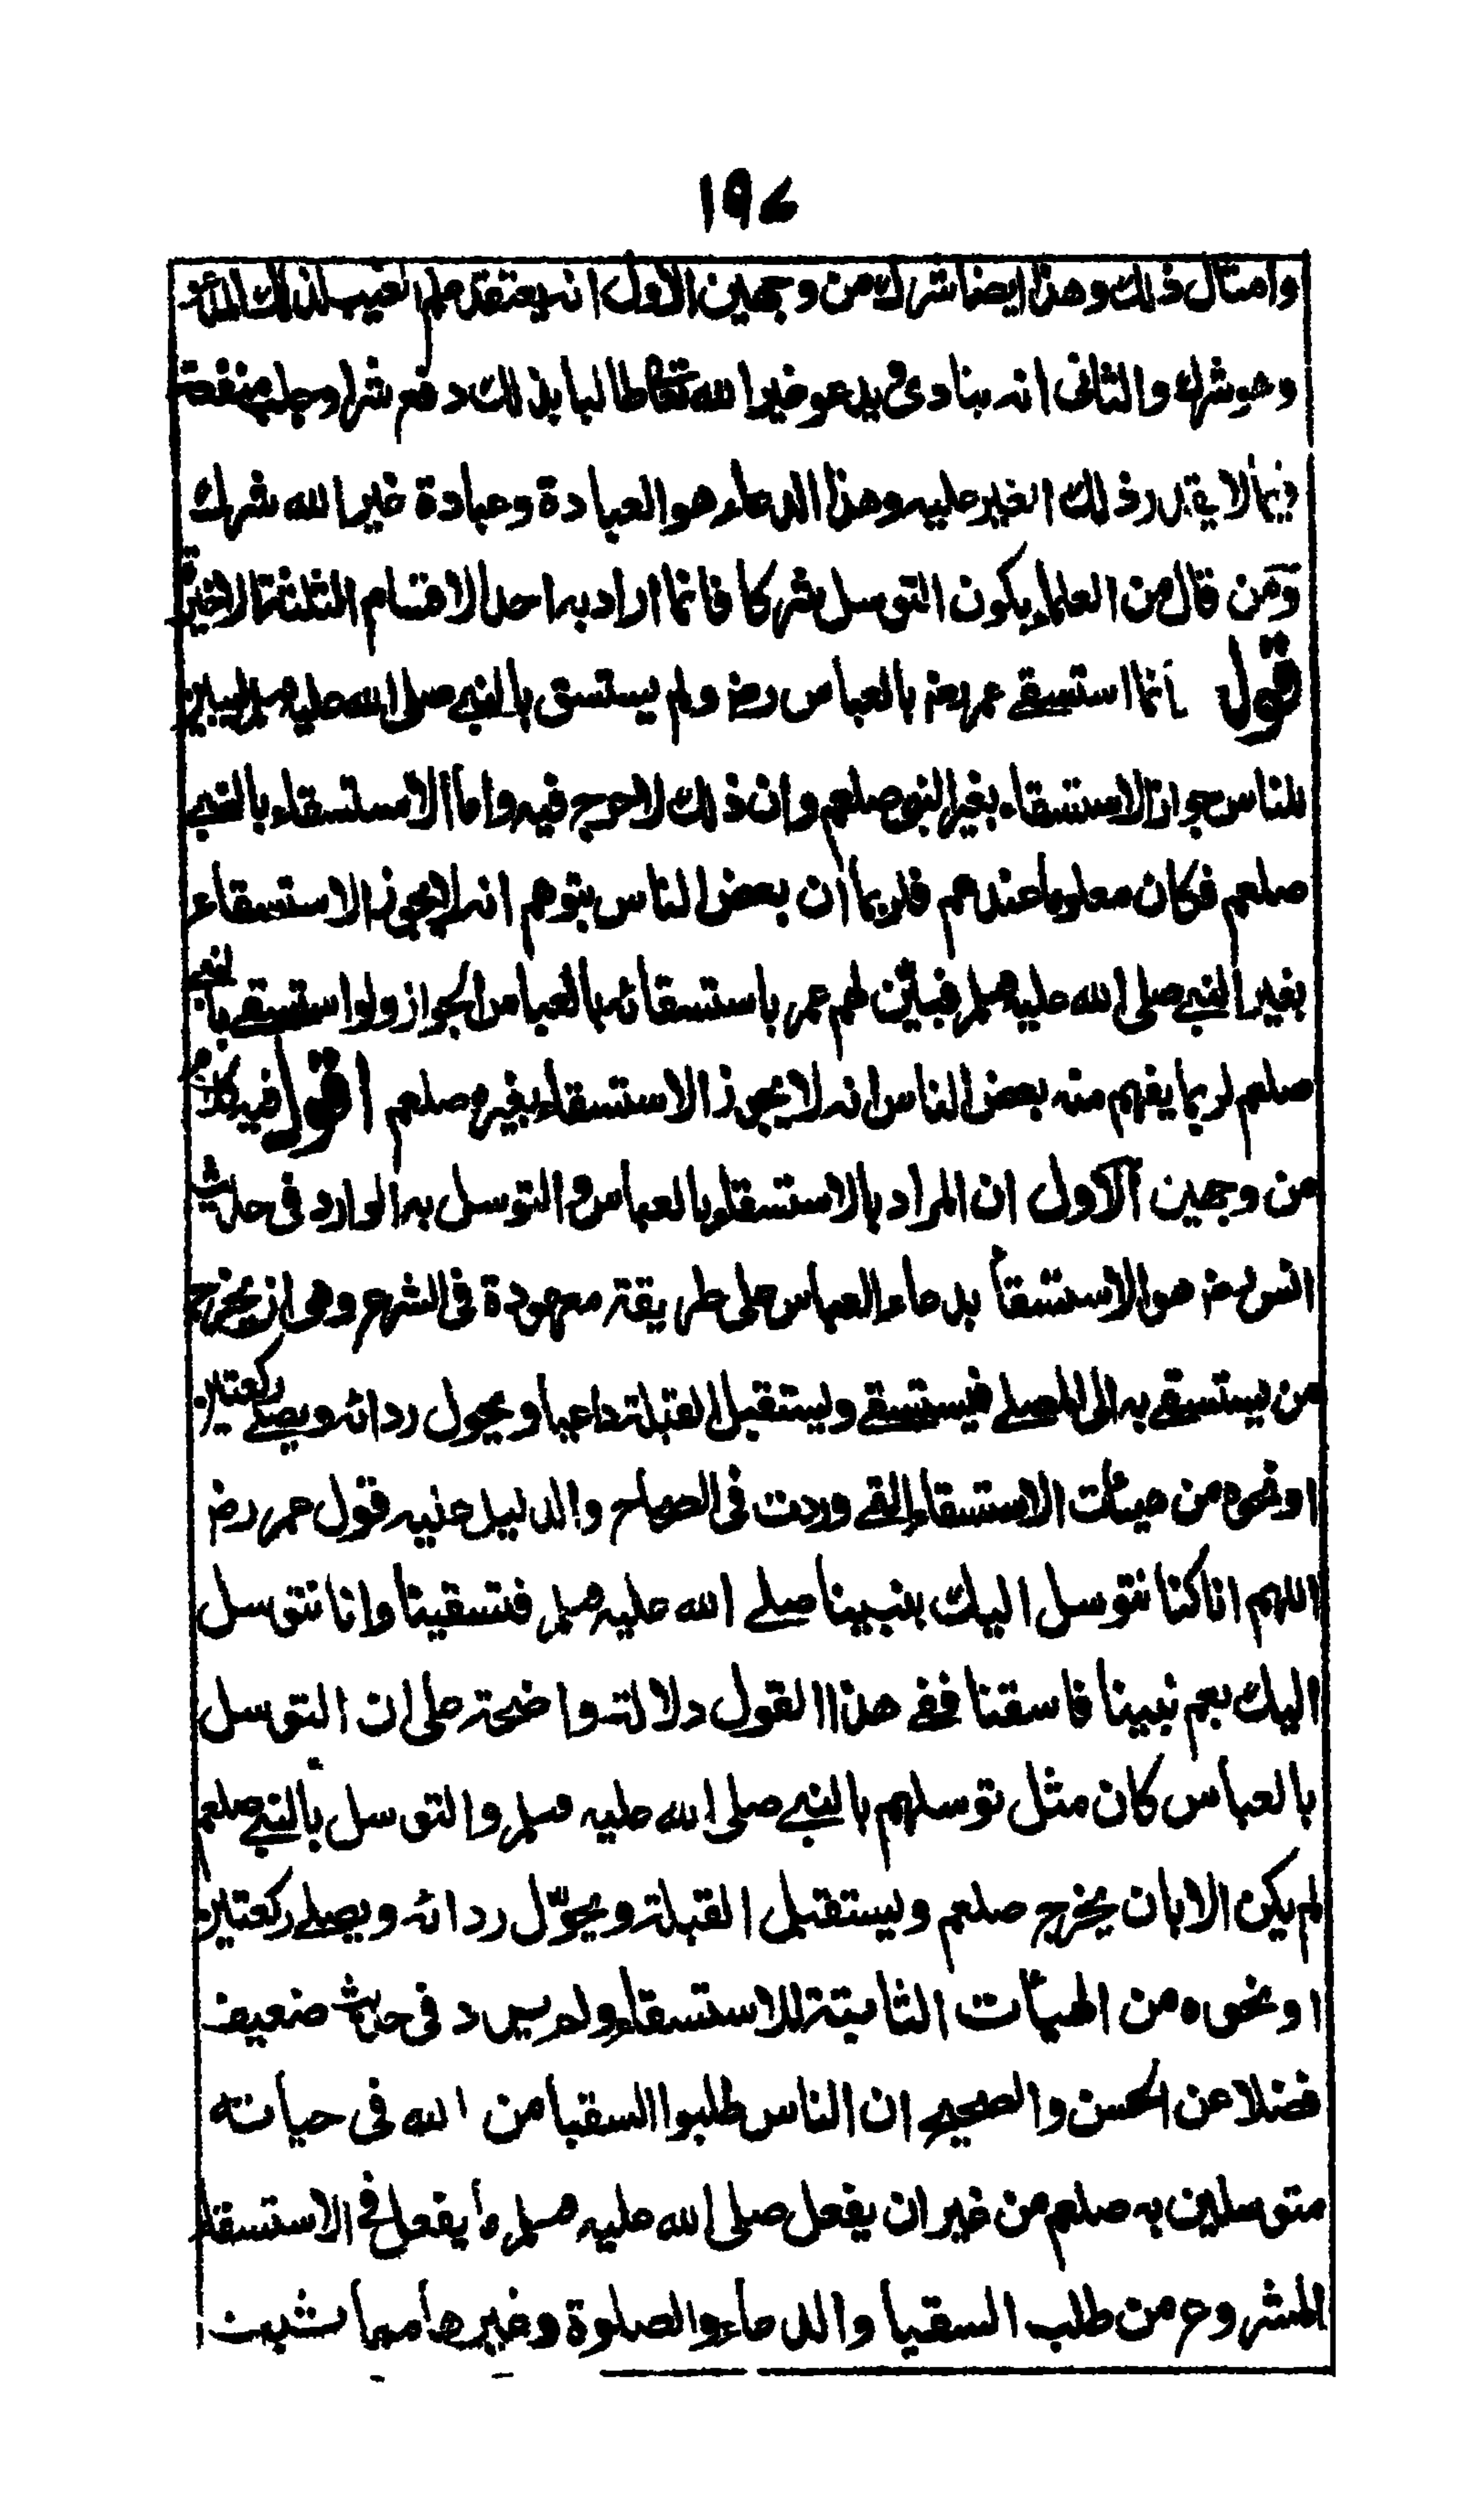 ١٩٤
وامثال ذلك وهذا ايضا شرك من وجهين الاول انه يعتقد علم الغيب لذلك
وهو شرك والثاني انه ينادي ويدعو غير الله تعالى طالبا بذلك دفع شر او جلب منفعة
فيما لا يقدر ذلك الغير عليه وهذا الدعاء هو العبادة وعبادة غير الله شرك
ومن قال من العلماء بكون التوسل شركا فانما اراد به احد الاقسام الثلثة الاخيرة
قوله انما استسقى عمر رض بالعباس رض ولم يستسق بالنبي صلى الله عليه وسلم ليبين
للناس جواز الاستسقاء بغير النبي صلعم وان ذلك لا حرج فيه واما الاستسقاء بالنبي
صلعم فكان معلوما عندهم فلربما ان بعض الناس يتوهم انه لا يجوز الاستسقاء
بغير النبي صلى الله عليه وسلم فبين لهم عمر باستسقائه بالعباس الجواز ولو استسقى بالنبي
صلعم لربما يفهم منه بعض الناس انه لا يجوز الاستسقاء بغيره صلعم اقول فيه كلام
من وجهين الاول ان المراد بالاستسقاء بالعباس والتوسل به الوارد في حديث
انس رض هو الاستسقاء بدعاء العباس على طريقة معهودة في الشرع وهو ان يخرج
من يستسقى به الى المصلى فيستسقى ويستقبل القبلة داعيا ويحول ردائه ويصلي ركعتين
او نحوه من هيئات الاستسقاء التي وردت في الصحاح والدليل عليه قول عمر رض
اللهم انا كنا نتوسل اليك بنبينا صلى الله عليه وسلم فتسقينا وانا نتوسل
اليك بعم نبينا فاسقنا ففي هذا القول دلالة واضحة على ان التوسل
بالعباس كان مثل توسلهم بالنبي صلى الله عليه وسلم والتوسل بالنبي صلعم
لم يكن الا بان يخرج صلعم ويستقبل القبلة ويحوّل ردائه ويصلي ركعتين
او نحوه من الهيئات الثابتة للاستسقاء ولم يرد في حديث ضعيف
فضلا عن الحسن والصحيح ان الناس طلبوا السقيا من الله في حياته
متوسلين به صلعم من غير ان يفعل صلى الله عليه وسلم ما يفعل في الاستسقاء
المشروع من طلب السقيا والدعاء والصلوة وغيرهما مما ثبت